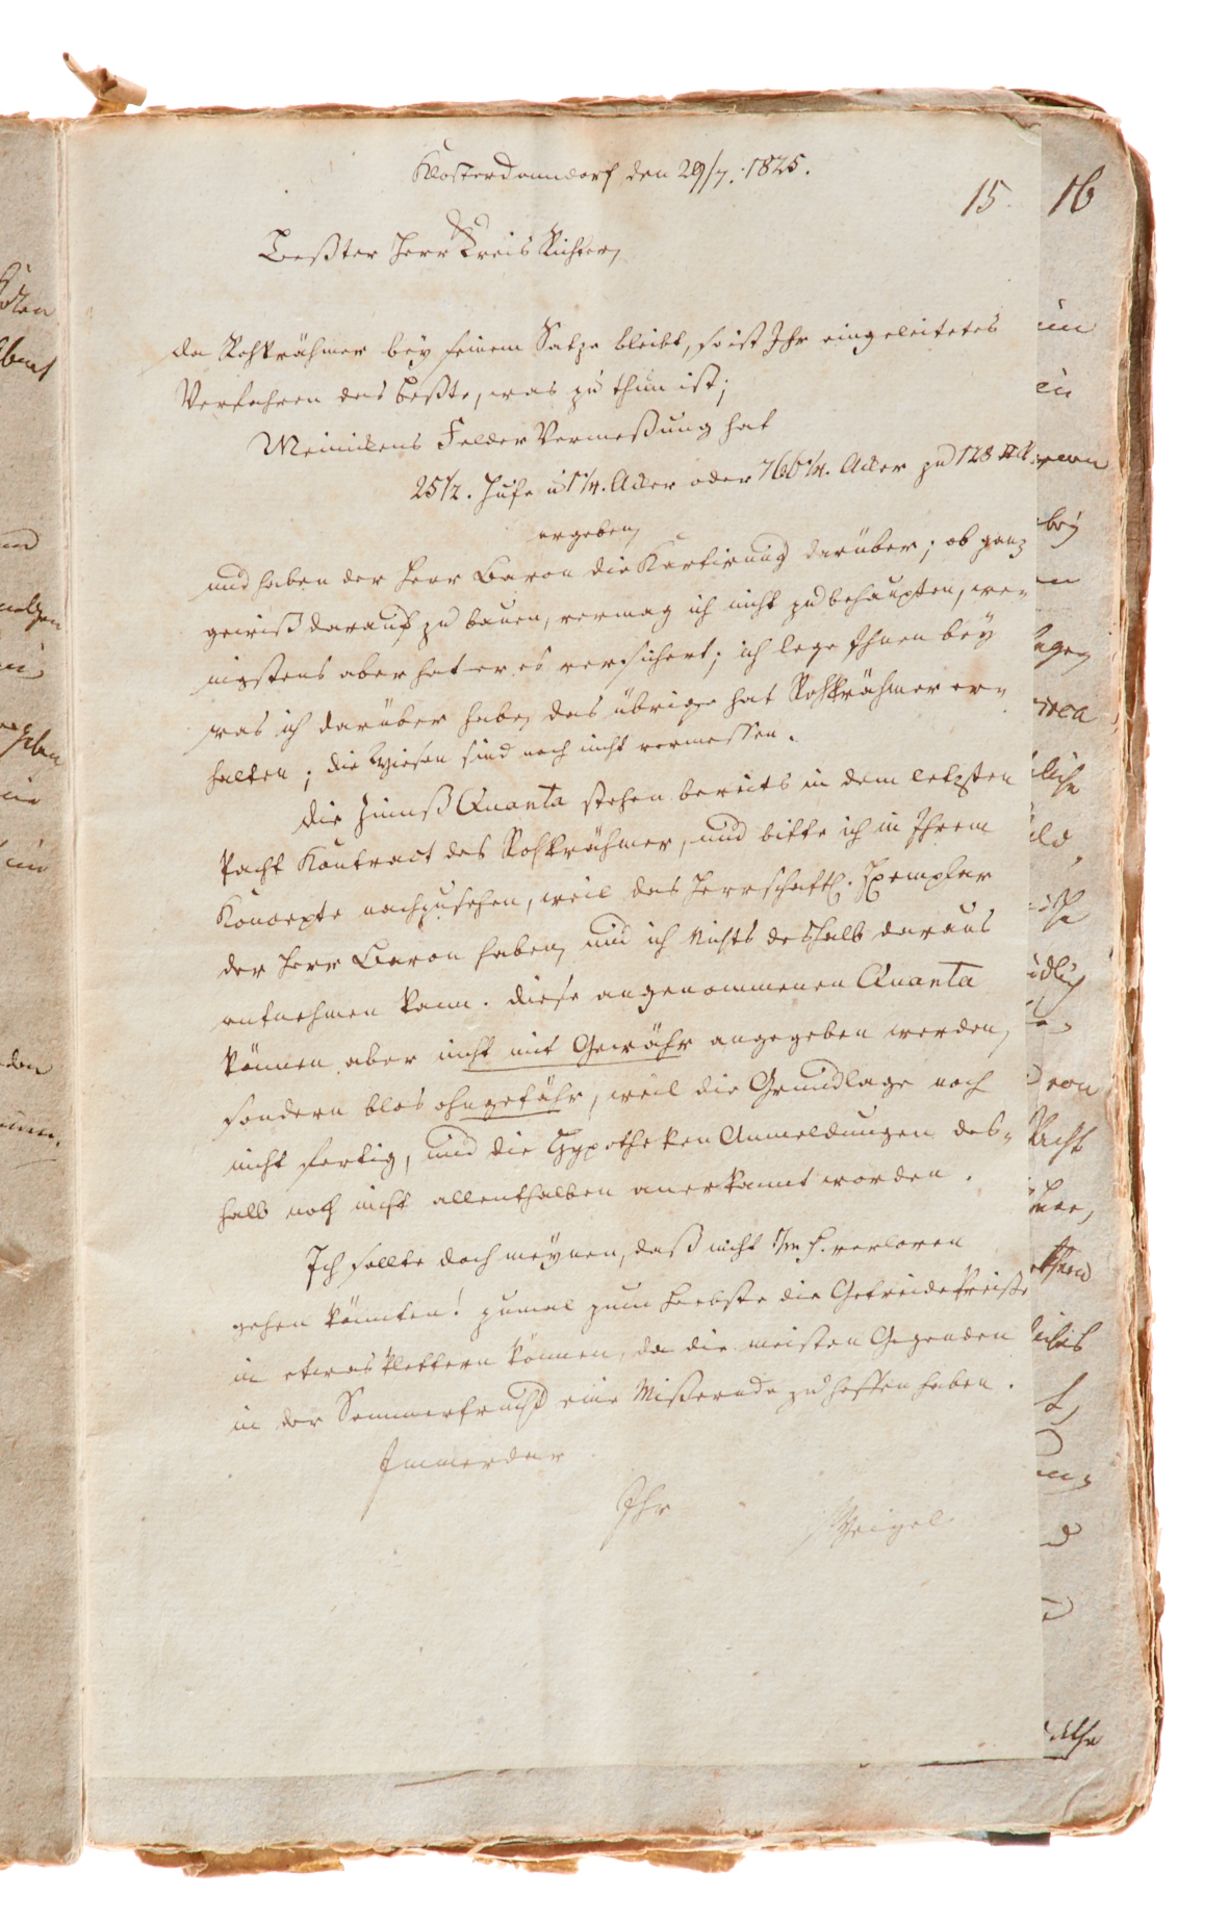 Klosterdonndorf den 29/7. 1825.
15. 16
Beßter Herr Kreis Richter,
da Rohkrähmer bey seinem Satze bleibt, so ist Ihr eingeleitetes
Verfahren das beßte, was zu thun ist;
Meinickens Felder Vermeßung hat
25½. Hufe u 1¼. Acker oder 766¼. Acker zu 128
ergeben,
und haben der Herr Baron die Kartirung darüber; ob ganz
gewiß darauf zu bauen, vermag ich nicht zu behaupten, we-
nigstens aber hat er es versichert; ich lege Ihnen bey
was ich darüber habe, das übrige hat Rohkrähmer er-
halten; die Wiesen sind noch nicht vermessen.
Die Zinnß Quanta stehen bereits in dem letzten
Pacht Kontract des Rohkrähmer, und bitte ich in Ihrem
Koncepte nachzusehen, weil das Herrschaftl. Exemplar
der Herr Baron haben, und ich Nichts deshalb daraus
entnehmen kann. Diese angenommenen Quanta
können aber nicht mit Gewähr angegeben werden,
sondern blos ohngefähr, weil die Grundlage noch
nicht fertig, und die Hypotheken Anmeldungen des-
halb noch nicht allenthalben anerkannt worden.
Ich sollte doch meynen, daß nicht verloren
gehen könnten! zumal zum Herbste die Getreidepreiße
in etwas klettern können, da die meisten Gegenden
in der Sommerfrucht eine Mißernde zu hoffen haben.
Immerdar
Ihr
Weigel